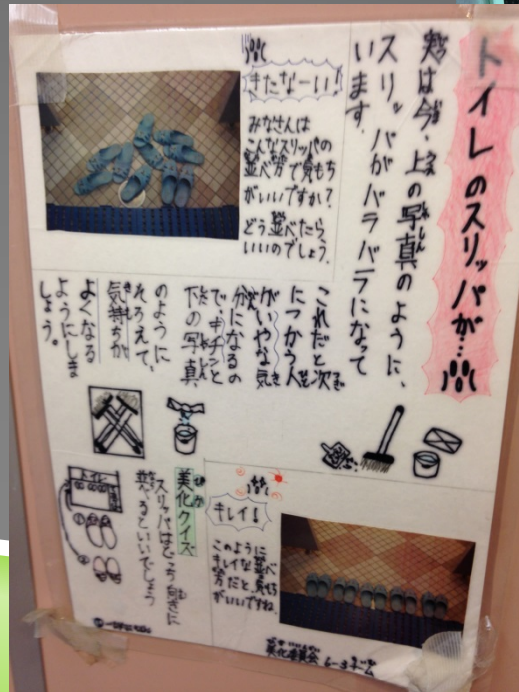 トイレのスリッパが…
実は今、上の写真のように、
スリッパがバラバラになって
います。
きたなーい!
みなさんは
こんなスリッパの
並べ方で気もち
がいいですか?
どう並べたら
いいのでしょう。
これだと次
につかう人も
がいやな気
分になるの
で、キチンと
下の写真
のように
そろえて、
気持ちが
よくなる
ようにしま
しょう。
キレイ!
このように
キレイな並べ
方だと、気もち
がいいですね。
美化クイズ
スリッパはどっち向きに
並べるといいでしょう
トイレ
①
②
美化委員会